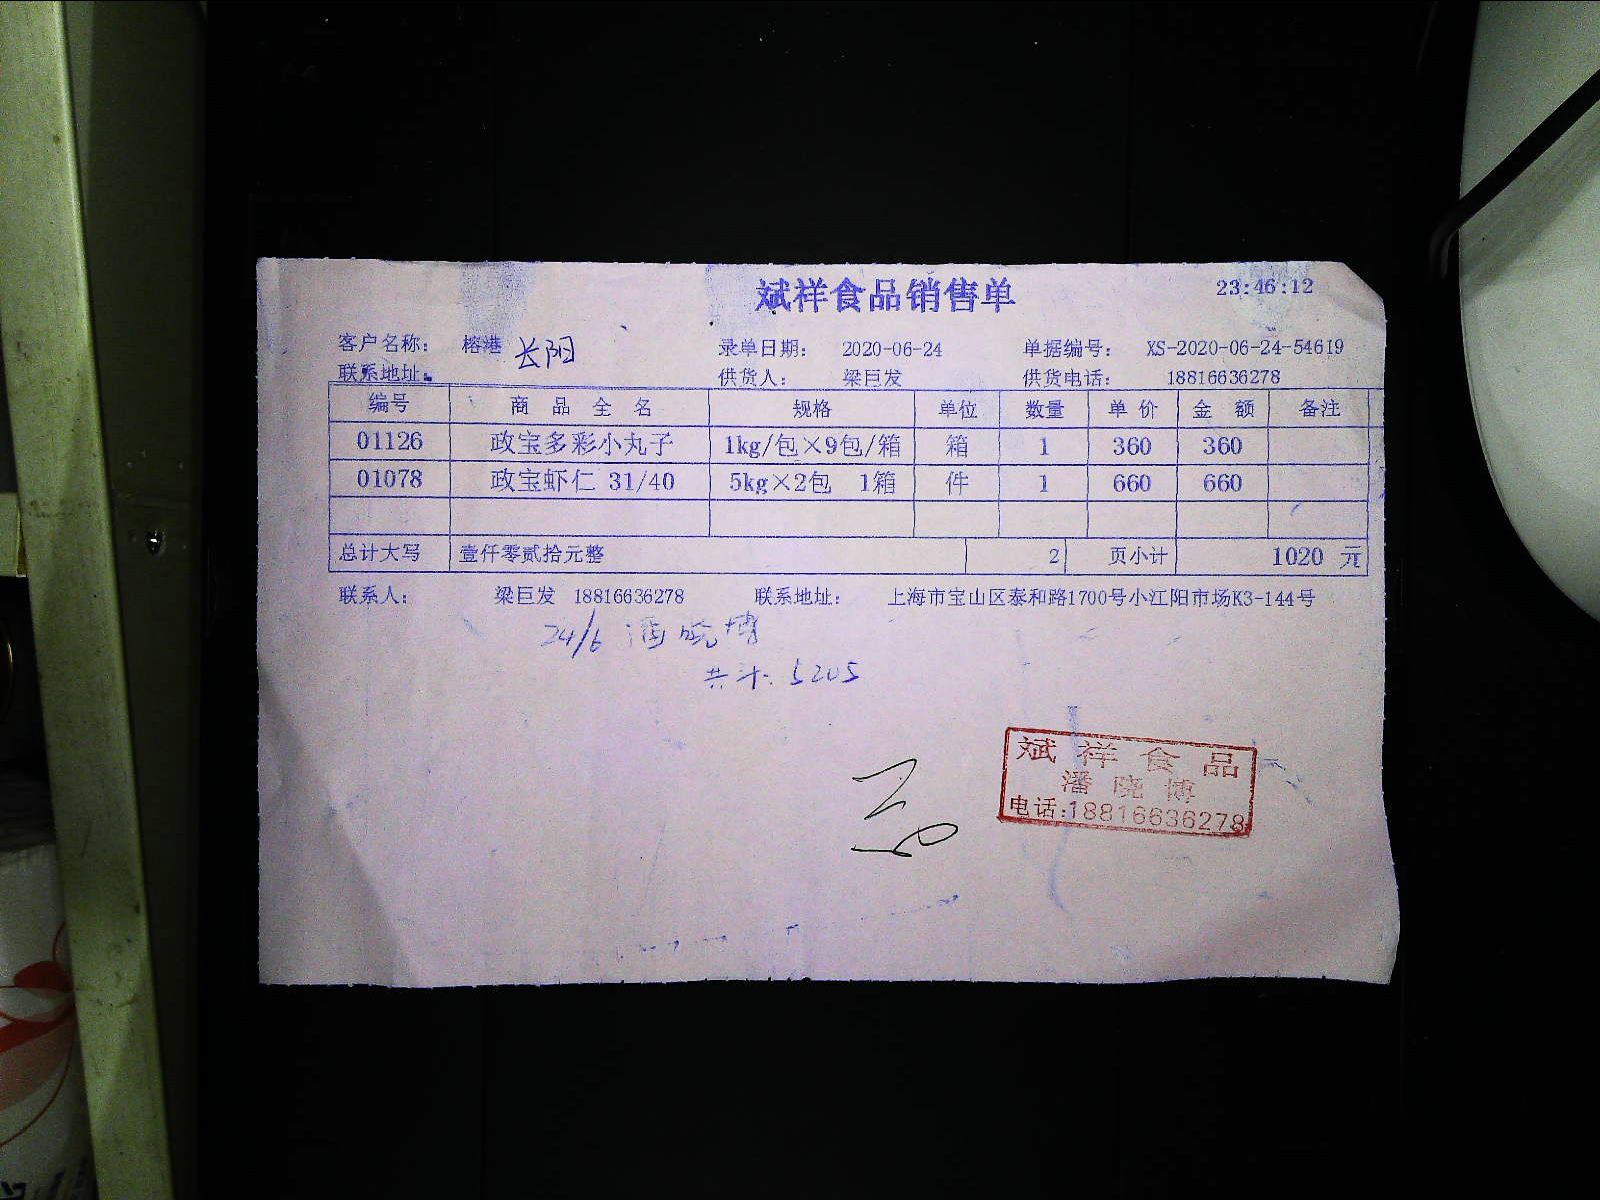 斌祥食品销售单 23:46:12
客户名称： 榕港 长阳 录单日期： 2020-06-24 单据编号： XS-2020-06-24-54619
联系地址： 供货人： 梁巨发 供货电话： 18816636278
编号 商 品 全 名 规格 单位 数量 单 价 金 额 备注
01126 政宝多彩小丸子 1kg/包×9包/箱 箱 1 360 360
01078 政宝虾仁 31/40 5kg×2包 1箱 件 1 660 660
总计大写 壹仟零贰拾元整 2 页小计 1020 元
联系人： 梁巨发 18816636278 联系地址： 上海市宝山区泰和路1700号小江阳市场K3-144号
24/6 潘晓博
共计: 5205
斌祥食品
潘晓博
电话:18816636278